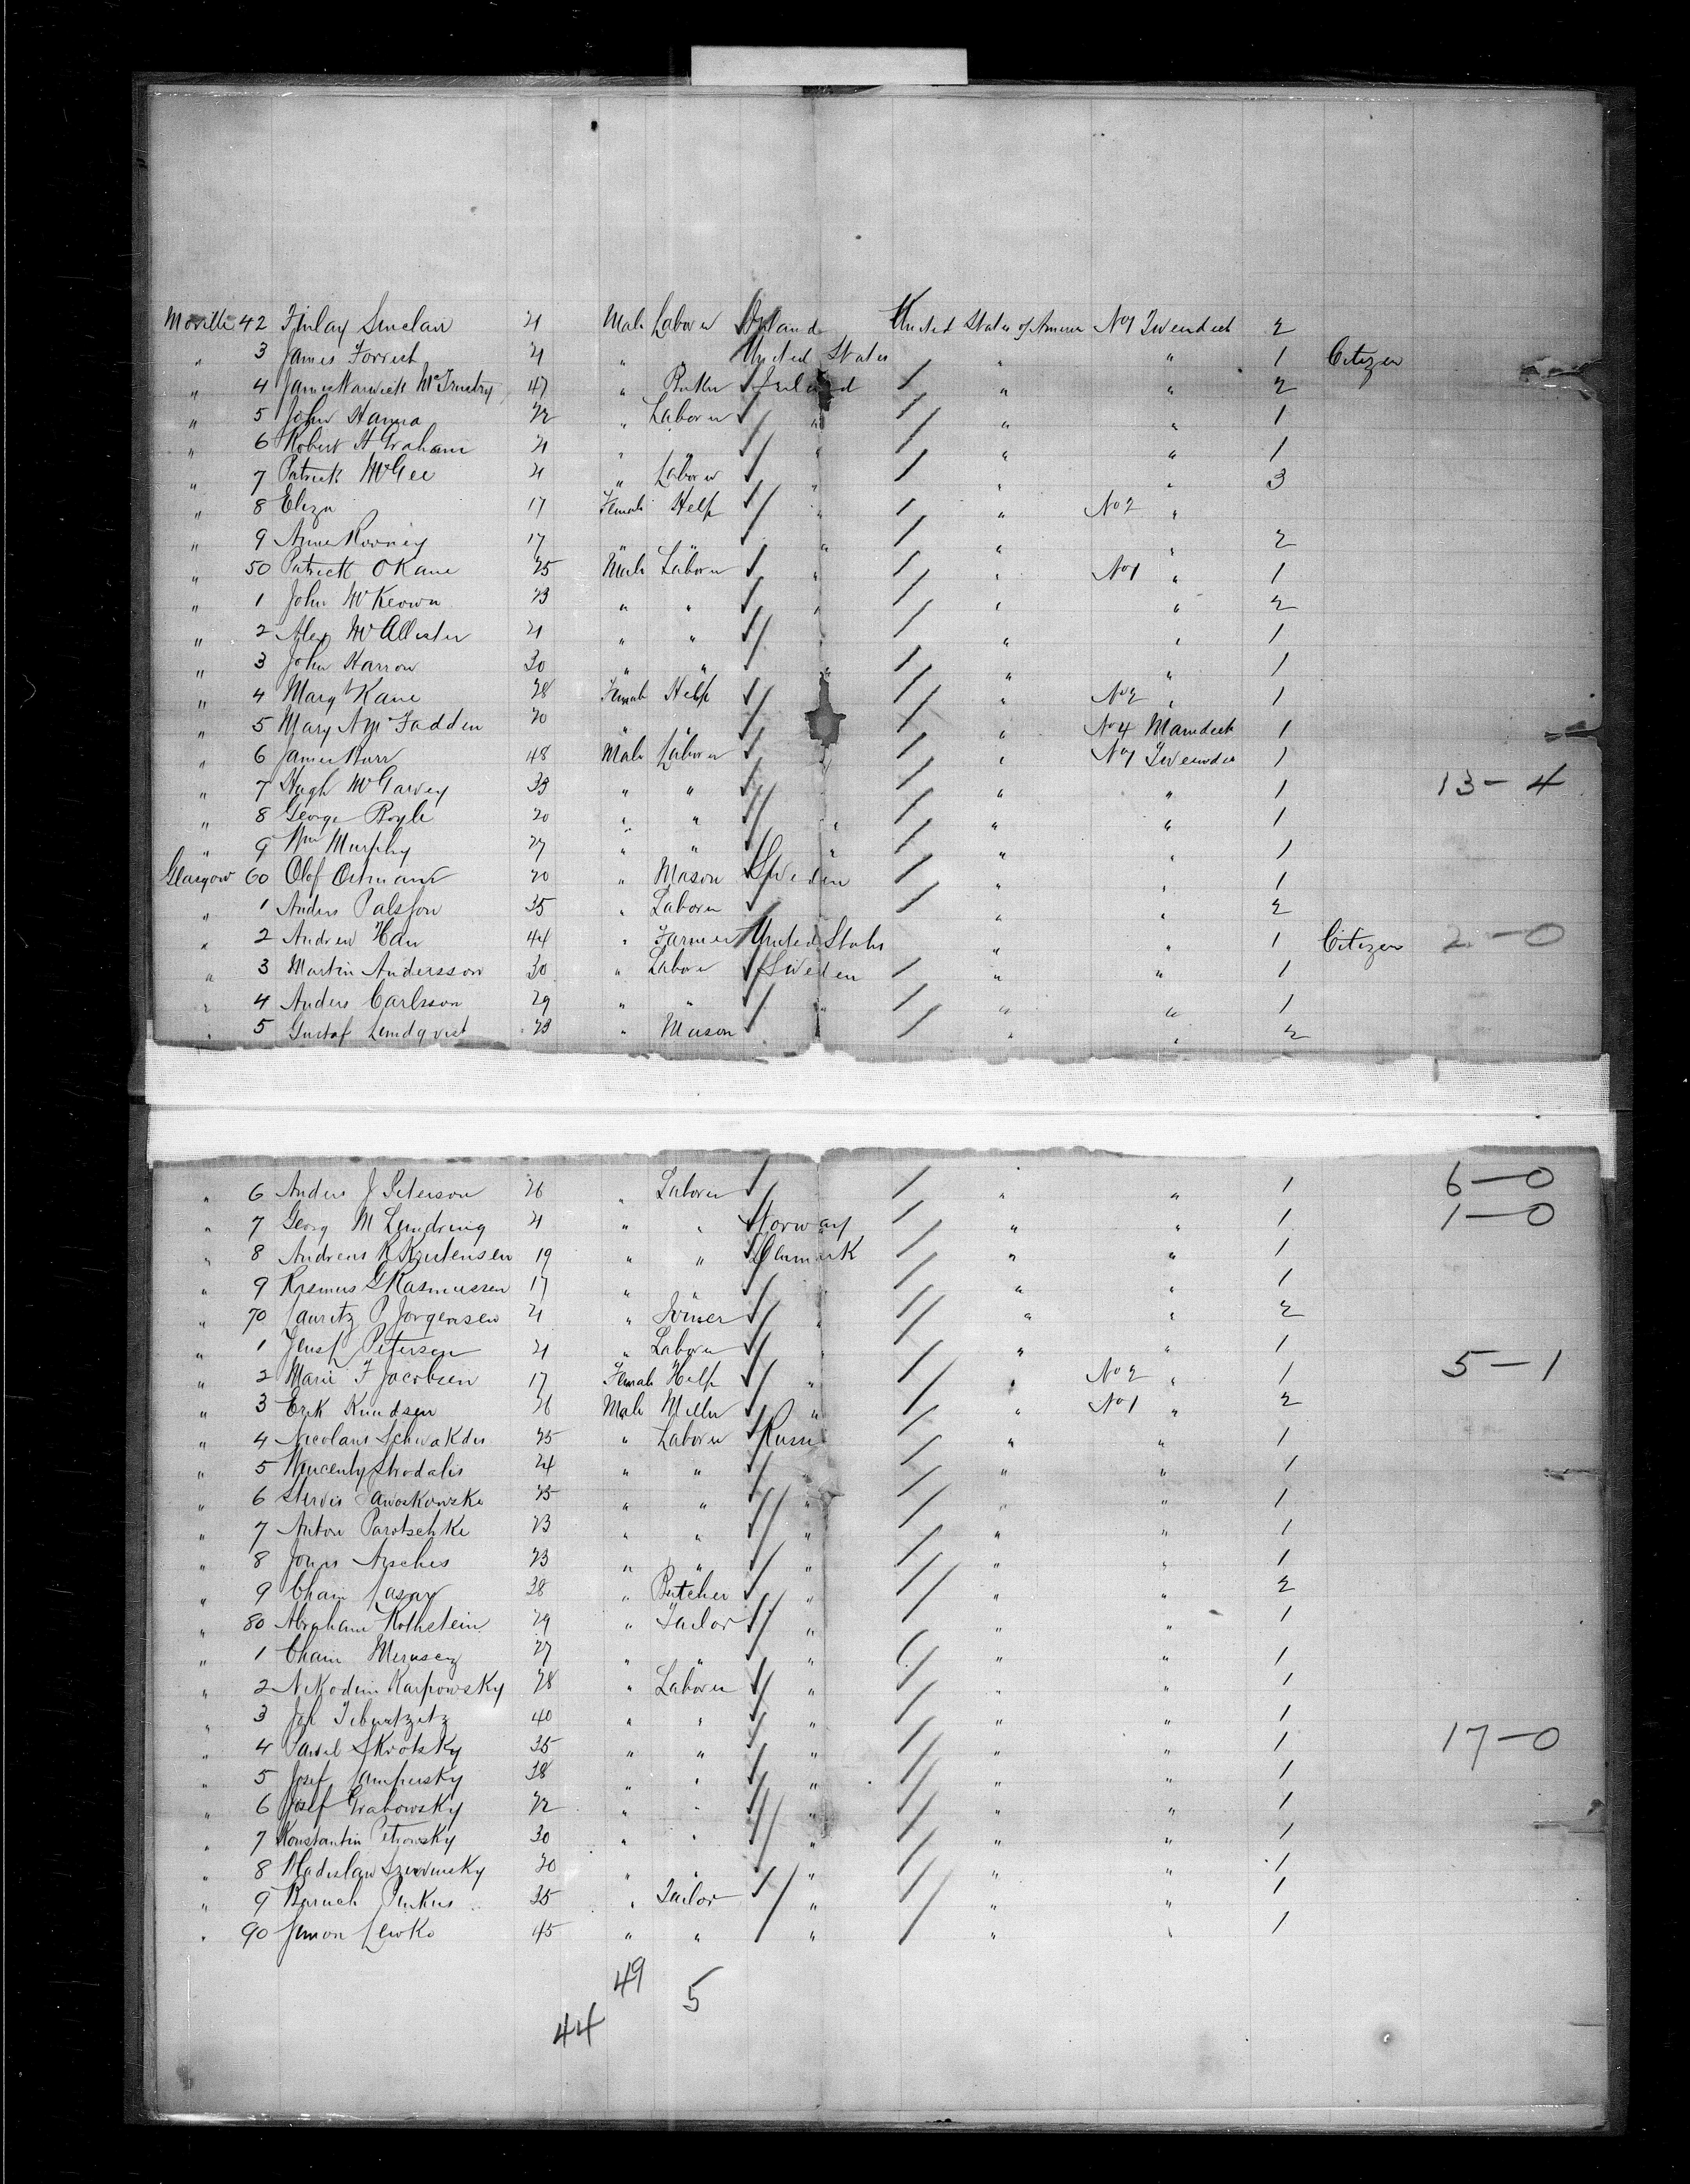 Moville 42 Finlay Sinclair 21 Male Laborer Ireland United States of America No 1 Tweendeck 2
" 3 James Forrest 21 " United States " " 1 Citizen
" 4 James Warwick McTrustry 47 " Baker Ireland " " 2
" 5 John Hanna 22 " Laborer " " " 1
" 6 Robert H Graham 21 " " " " " 1
" 7 Patrick McGee 21 " Laborer " " " 3
" 8 Eliza 17 Female Help " " No 2 "
" 9 Anne Rooney 17 " " " " " 2
" 50 Patrick O Kane 25 Male Laborer " " No 1 " 1
" 1 John McKeown 23 " " " " " 2
" 2 Alex McAllister 21 " " " " " 1
" 3 John Harrow 30 " " " " " 1
" 4 Margt Kane 28 Female Help " No 2 " 1
" 5 Mary A McFadden 20 " " " No 4 Maindeck 1
" 6 James Burr 48 Male Laborer " No 1 Tweendec 1
" 7 Hugh McGarvey 33 " " " " 1 13 - 4
" 8 George Boyle 20 " " " " " 1
" 9 Wm Murphy 27 " " " " " 1
Glasgow 60 Olof Ostmann 20 " Mason Sweden " " 1
" 1 Anders Palsson 35 " Laborer " " 2
" 2 Andrew Hau 44 " Farmer United States " " 1 Citizen 2 - 0
" 3 Martin Andersson 30 " Laborer Sweden " " 1
" 4 Anders Carlsson 29 " " " " " 1
" 5 Gustaf Lundqvist 23 " Mason " " 2
" 6 Anders J Peterson 26 " Laborer " " 1 6 - 0
" 7 Georg M Lundring 21 " " Norway " " 1 1 - 0
" 8 Andreas K Kristensen 19 " " Denmark " " 1
" 9 Rasmus G Rasmussen 17 " " " " 1
" 70 Lauritz P Jorgensen 21 " Joiner " " " 2
" 1 Jens P Peterson 21 " Laborer " " " 1
" 2 Marie F Jacobsen 17 Female Help " " No 2 " 1 5 - 1
" 3 Erik Knudsen 26 Male Miller " " No 1 " 2
" 4 Nicolaus Schwakder 25 " Laborer Russi " " 1
" 5 Wincenty Strodalis 24 " " " " 1
" 6 25 " " " " " 1
" 7 Anton Parotschke 23 " " " " " 1
" 8 Jonas Arsches 23 " " " " " 1
" 9 Chaim Lasar 38 " Butcher " " " 2
" 80 Abraham Rothstein 29 " Tailor " " " 1
" 1 Chaim 27 " " " " " 1
" 2 Nikodim Karpowsky 28 " Laborer " " " 1
" 3 40 " " " " " 1
" 4 Pawel Skrotsky 35 " " " " " 1 17 - 0
" 5 Josef 38 " " " " " 1
" 6 Josef Grabowsky 22 " " " " " 1
" 7 Konstantin Petrowsky 30 " " " " " 1
" 8 Wladislaw 20 " " " " " 1
" 9 Baruch Pinkus 35 " Tailor " " " 1
" 90 Simon Lewko 45 " " " " " 1
49 5
44